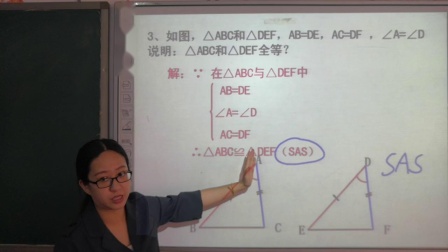 3、如图，△ABC和△DEF，AB=DE，AC=DF，∠A=∠D
说明：△ABC和△DEF全等？
解：∵ 在△ABC与△DEF中
AB=DE
∠A=∠D
AC=DF
∴△ABC≌△DEF（SAS）
A D SAS
B C E F